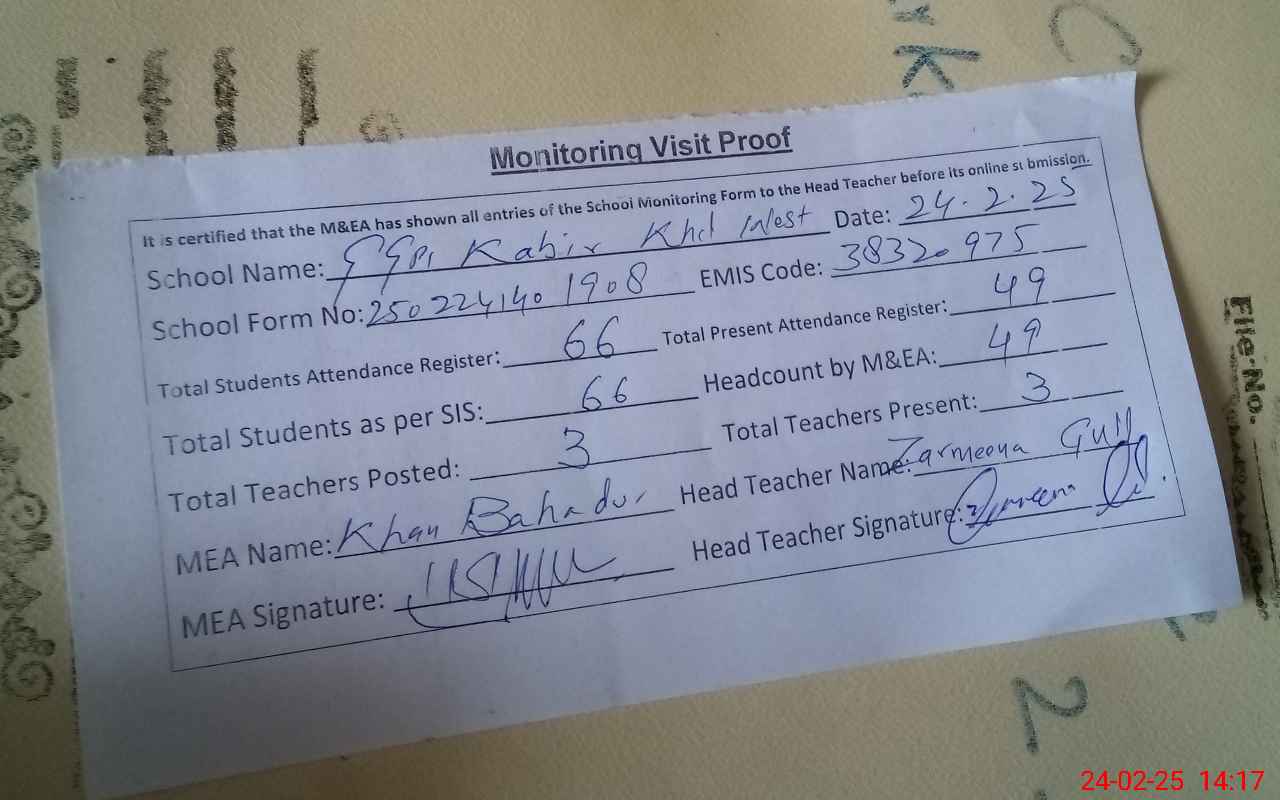 K
Monitoring Visit Proof
It is certified that the M&EA has shown all entries of the School Monitoring Form to the Head Teacher before its online submission.
School Name: GGPS Kabir Khel West Date: 24.2.25
School Form No: 250224140 1908 EMIS Code: 38320975
Total Students Attendance Register: 66 Total Present Attendance Register: 49
Total Students as per SIS: 66 Headcount by M&EA: 49
Total Teachers Posted: 3 Total Teachers Present: 3
MEA Name: Khan Bahadur Head Teacher Name: Zarmeena Gull
MEA Signature: Head Teacher Signature:
File No.
2
24-02-25 14:17